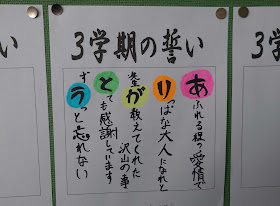 3学期の誓い
あふれる程の愛情で
りっぱな大人になれと
皆が教えてくれた沢山の事
とても感謝しています
ずうっと忘れない